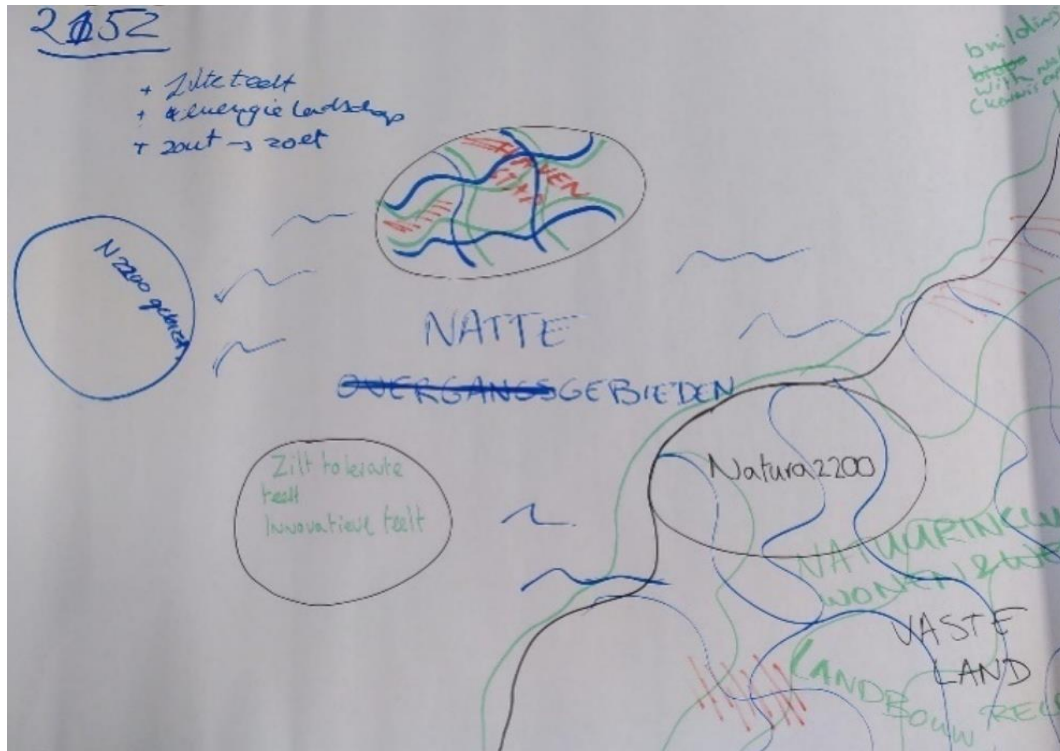 2152
+ Zilte teelt
+ energie landschap
+ zout → zoet
building
with
HAVEN
STAD
N2200 gebied
NATTE
OVERGANGSGEBIEDEN
Zilt tolerante
teelt
Innovatieve teelt
Natura2200
NATUURINCLU
WONEN & WE
VASTE
LAND
LANDBOUW